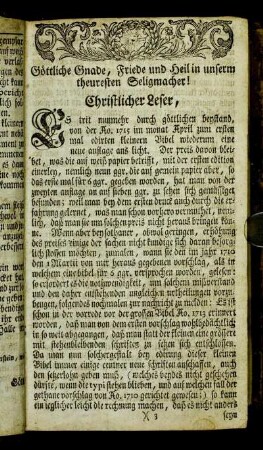 Göttliche Gnade, Friede und Heil in unserm
theuresten Seligmacher!
Christlicher Leser,
ES trit nunmehr durch göttlichen beystand,
von der Ao. 1713 im monat April zum ersten
mal edirten kleinern Bibel wiederum eine
neue auflage ans licht. Der preis davon blei-
bet, was die auf weiß papier betrift, mit der ersten edition
einerley, nemlich neun ggr. die auf gemein papier aber, so
das erste mal für 6 ggr. gegeben worden, hat man von der
andern auflage an auf sieben ggr. zu setzen sich gemüßiget
befunden; weil man bey dem ersten druck auch durch die er-
fahrung gelernet, was man schon vorhero vermuthet, nem-
lich, daß man sie um solchen preis nicht heraus bringen kan-
ne. Wenn aber bey solcher, obwol geringen, erhöhung
des preises einige der sachen nicht kundige sich daran besorg-
lich stossen möchten, zumalen, wann sie den im jahr 1710
den 1 Martii von mir heraus gegebenen vorschlag, als in
welchem eine bibel für 6 ggr. versprochen worden, gelesen:
so erfordert es die nothwendigkeit, um solchem misverstand
und den daher entstehenden ungleichen urtheilungen vorzu-
beugen, folgendes nochmalen zur nachricht zu melden: Es ist
schon in der vorrede vor der großen Bibel Ao. 1713 erinnert
worden, daß man von dem ersten vorschlag wohlbedächtlich
in so weit abgegangen, daß man statt der kleinen eine größere
mit stehenbleibenden schriften zu setzen sich entschlossen.
Da man nun solchergestalt bey edirung dieser kleinen
Bibel immer einige centner neue schriften anschaffen, auch
den setzerlohn geben muß, (welches beydes nicht geschehen
dürfte, wenn die typi stehen blieben, und auf welchen fall der
gethane vorschlag von Ao. 1710 gerichtet gewesen:) so kann
ein ieglicher leicht die rechnung machen, daß es nicht anders
X 3 seyn